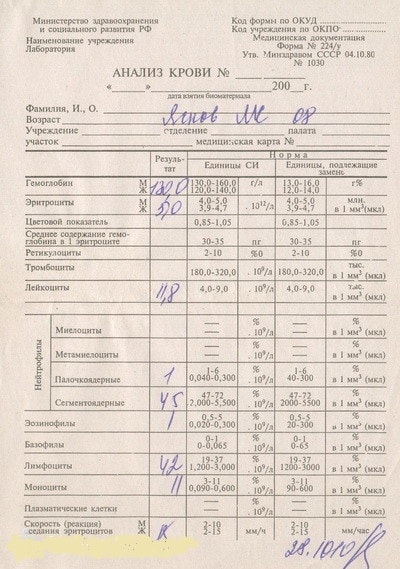 Министерство здравоохранения
и социального развития РФ
Наименование учреждения
Лаборатория
Код формы по ОКУД
Код учреждения по ОКПО
Медицинская документация
Форма № 224/у
Утв. Минздравом СССР 04.10.80
№ 1030
АНАЛИЗ КРОВИ №
« » 200 г.
дата взятия биоматериала
Фамилия, И., О.
Возраст
Учреждение отделение палата
участок медицинская карта №
Результат Норма
Единицы СИ Единицы, подлежащие замене
Гемоглобин М 130,0 130,0-160,0 г/л 13,0-16,0 г%
Ж 120,0-140,0 12,0-14,0
Эритроциты М 5,0 4,0-5,0 . 10¹²/л 4,0-5,0 млн.
Ж 3,9-4,7 3,9-4,7 в 1 мм³ (мкл)
Цветовой показатель 0,85-1,05 0,85-1,05
Среднее содержание гемо-
глобина в 1 эритроците 30-35 пг 30-35 пг
Ретикулоциты 2-10 %0 2-10 %0
Тромбоциты 180,0-320,0 . 10⁹/л 180,0-320,0 тыс. в 1 мм³ (мкл)
Лейкоциты 11,8 4,0-9,0 . 10⁹/л 4,0-9,0 тыс. в 1 мм³ (мкл)
Нейтрофилы
Миелоциты — % — %
— . 10⁹/л — в 1 мм³ (мкл)
Метамиелоциты — % — %
— . 10⁹/л — в 1 мм³ (мкл)
Палочкоядерные 1 1-6 % 1-6 %
0,040-0,300 . 10⁹/л 40-300 в 1 мм³ (мкл)
Сегментоядерные 45 47-72 % 47-72 %
2,000-5,500 . 10⁹/л 2000-5500 в 1 мм³ (мкл)
Эозинофилы 1 0,5-5 % 0,5-5 %
0,020-0,300 . 10⁹/л 20-300 в 1 мм³ (мкл)
Базофилы 0-1 % 0-1 %
0-0,065 . 10⁹/л 0-65 в 1 мм³ (мкл)
Лимфоциты 42 19-37 % 19-37 %
1,200-3,000 . 10⁹/л 1200-3000 в 1 мм³ (мкл)
Моноциты 11 3-11 % 3-11 %
0,090-0,600 . 10⁹/л 90-600 в 1 мм³ (мкл)
Плазматические клетки — % — %
— . 10⁹/л — в 1 мм³ (мкл)
Скорость (реакция) М 2-10 мм/ч 2-10 мм/час
оседания эритроцитов Ж 2-15 2-15
28.10.10